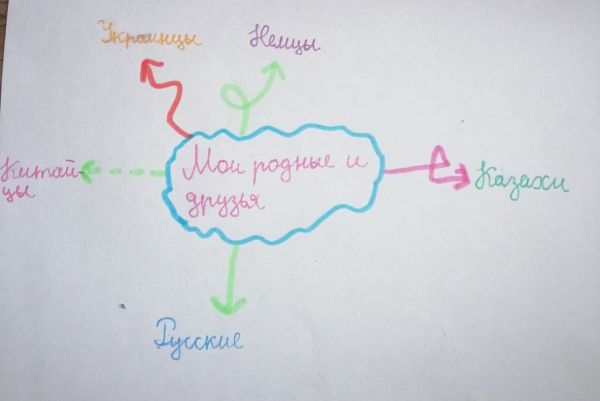 Украинцы
Немцы
Китай-
цы
Мои родные и
друзья
Казахи
Русские